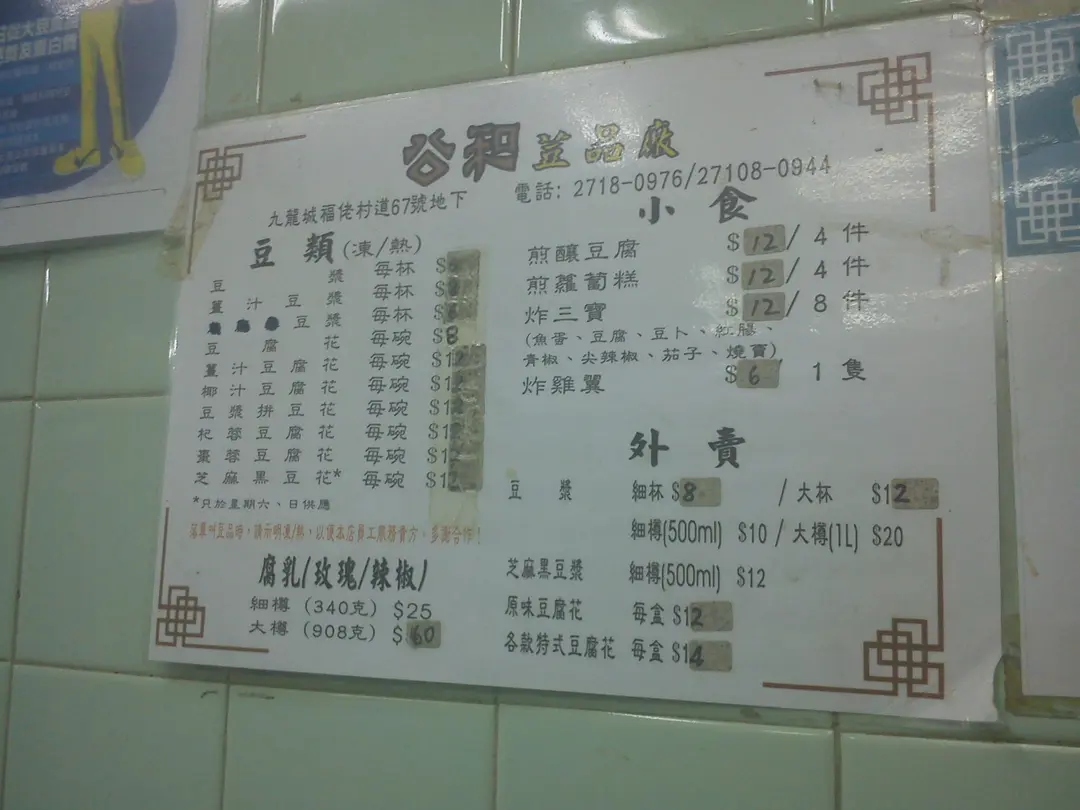 公和荳品廠
九龍城福佬村道67號地下 電話: 2718-0976/27108-0944
豆類(凍/熱)
豆漿 每杯 $
薑汁豆漿 每杯 $
豆漿 每杯 $
豆腐花 每碗 $8
薑汁豆腐花 每碗 $12
椰汁豆腐花 每碗 $12
豆漿拼豆花 每碗 $12
杞蓉豆腐花 每碗 $12
棗蓉豆腐花 每碗 $12
芝麻黑豆花* 每碗 $12
*只於星期六、日供應
落單叫豆品時,請示明凍/熱,以便本店員工服務貴方。多謝合作!
腐乳(玫瑰/辣椒)
細樽 (340克) $25
大樽 (908克) $60
小食
煎釀豆腐 $12/4件
煎蘿蔔糕 $12/4件
炸三寶 $12/8件
(魚蛋、豆腐、豆卜、紅腸、
青椒、尖辣椒、茄子、燒賣)
炸雞翼 $6 1隻
外賣
豆漿 細杯 $8 / 大杯 $12
細樽(500ml) $10 / 大樽(1L) $20
芝麻黑豆漿 細樽(500ml) $12
原味豆腐花 每盒 $12
各款特式豆腐花 每盒 $14